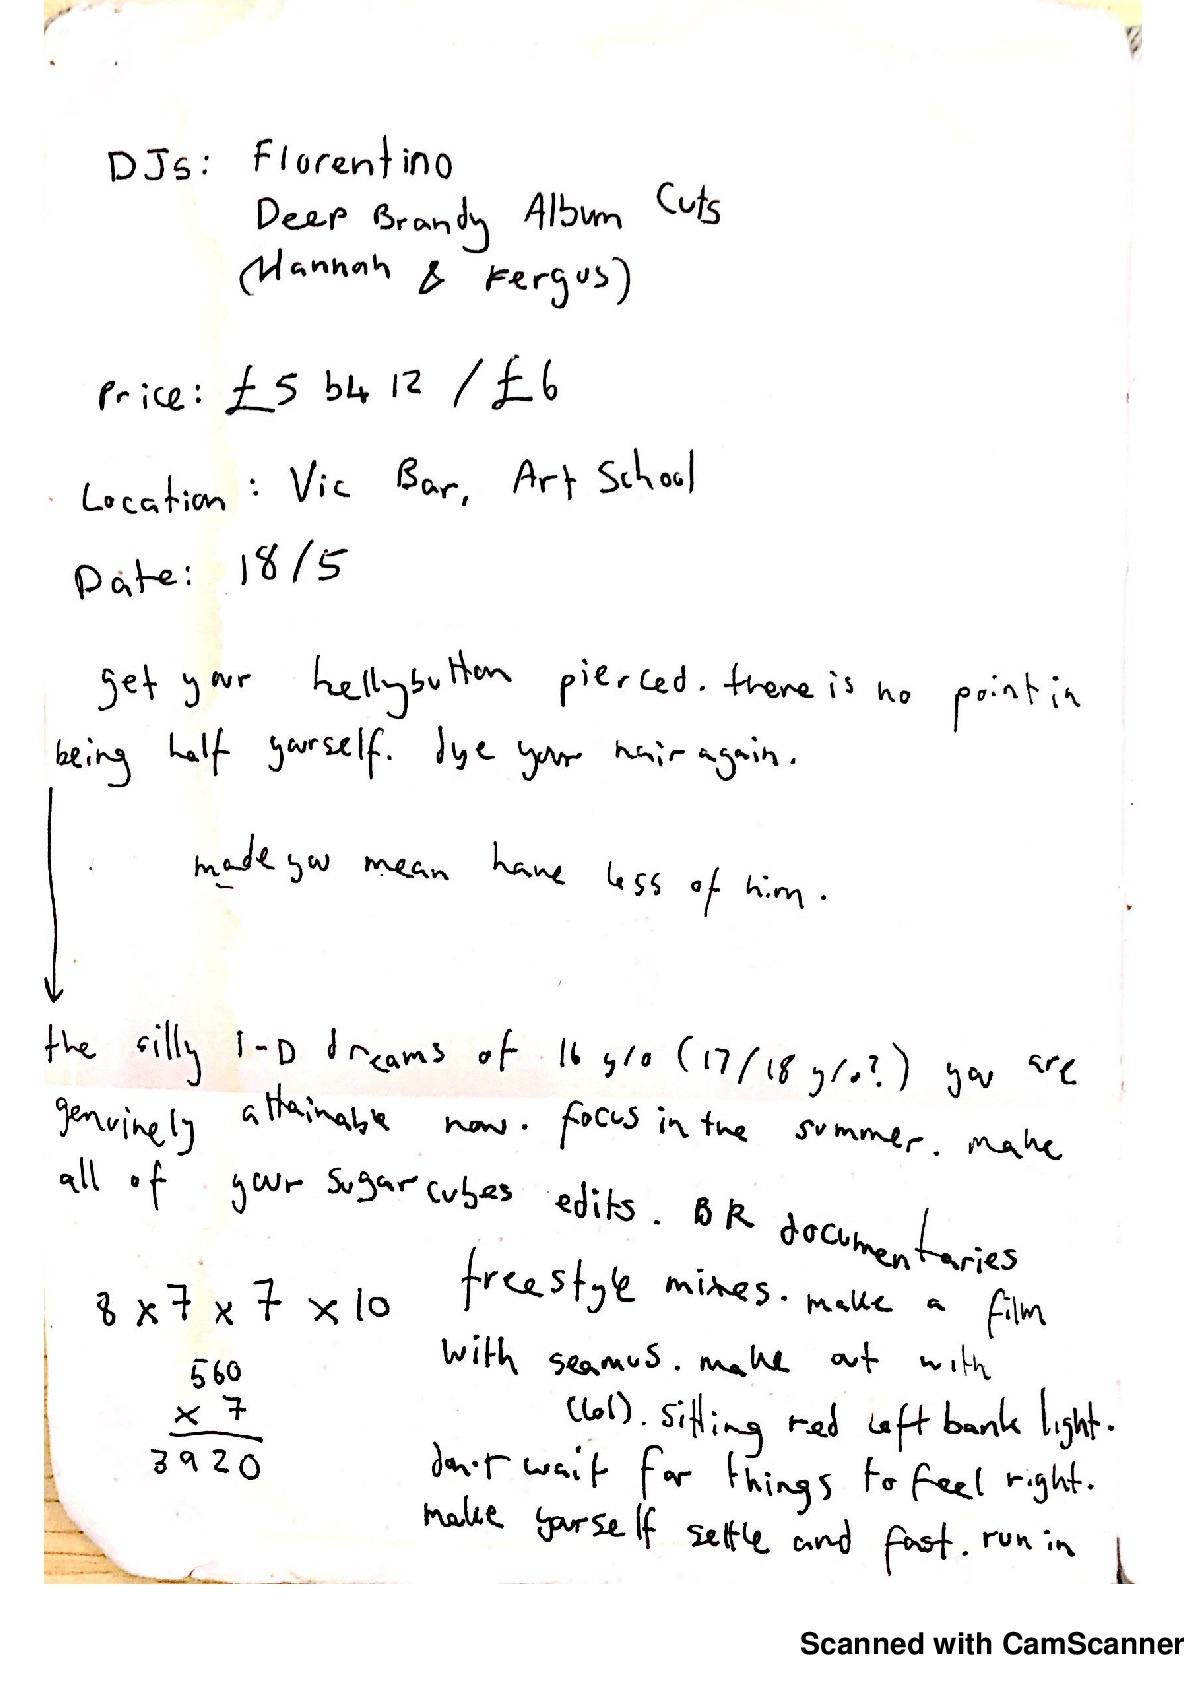 DJs: Florentino
Deep Brandy Album Cuts
(Hannah & Fergus)
Price: £5 b4 12 / £6
Location: Vic Bar, Art School
Date: 18/5
get your bellybutton pierced. there is no point in
being half yourself. dye your hair again.
made you mean have less of him.
the silly I-D dreams of 16 y/o (17/18 y/o?) you are
genuinely attainable now. focus in the summer. make
all of your sugarcubes edits. BR documentaries
freestyle mixes. make a film
with seamus. make out with
(lol). sitting red left bank light.
don't wait for things to feel right.
make yourself settle and fast. run in
8 x 7 x 7 x 10
560
x 7
3920
Scanned with CamScanner